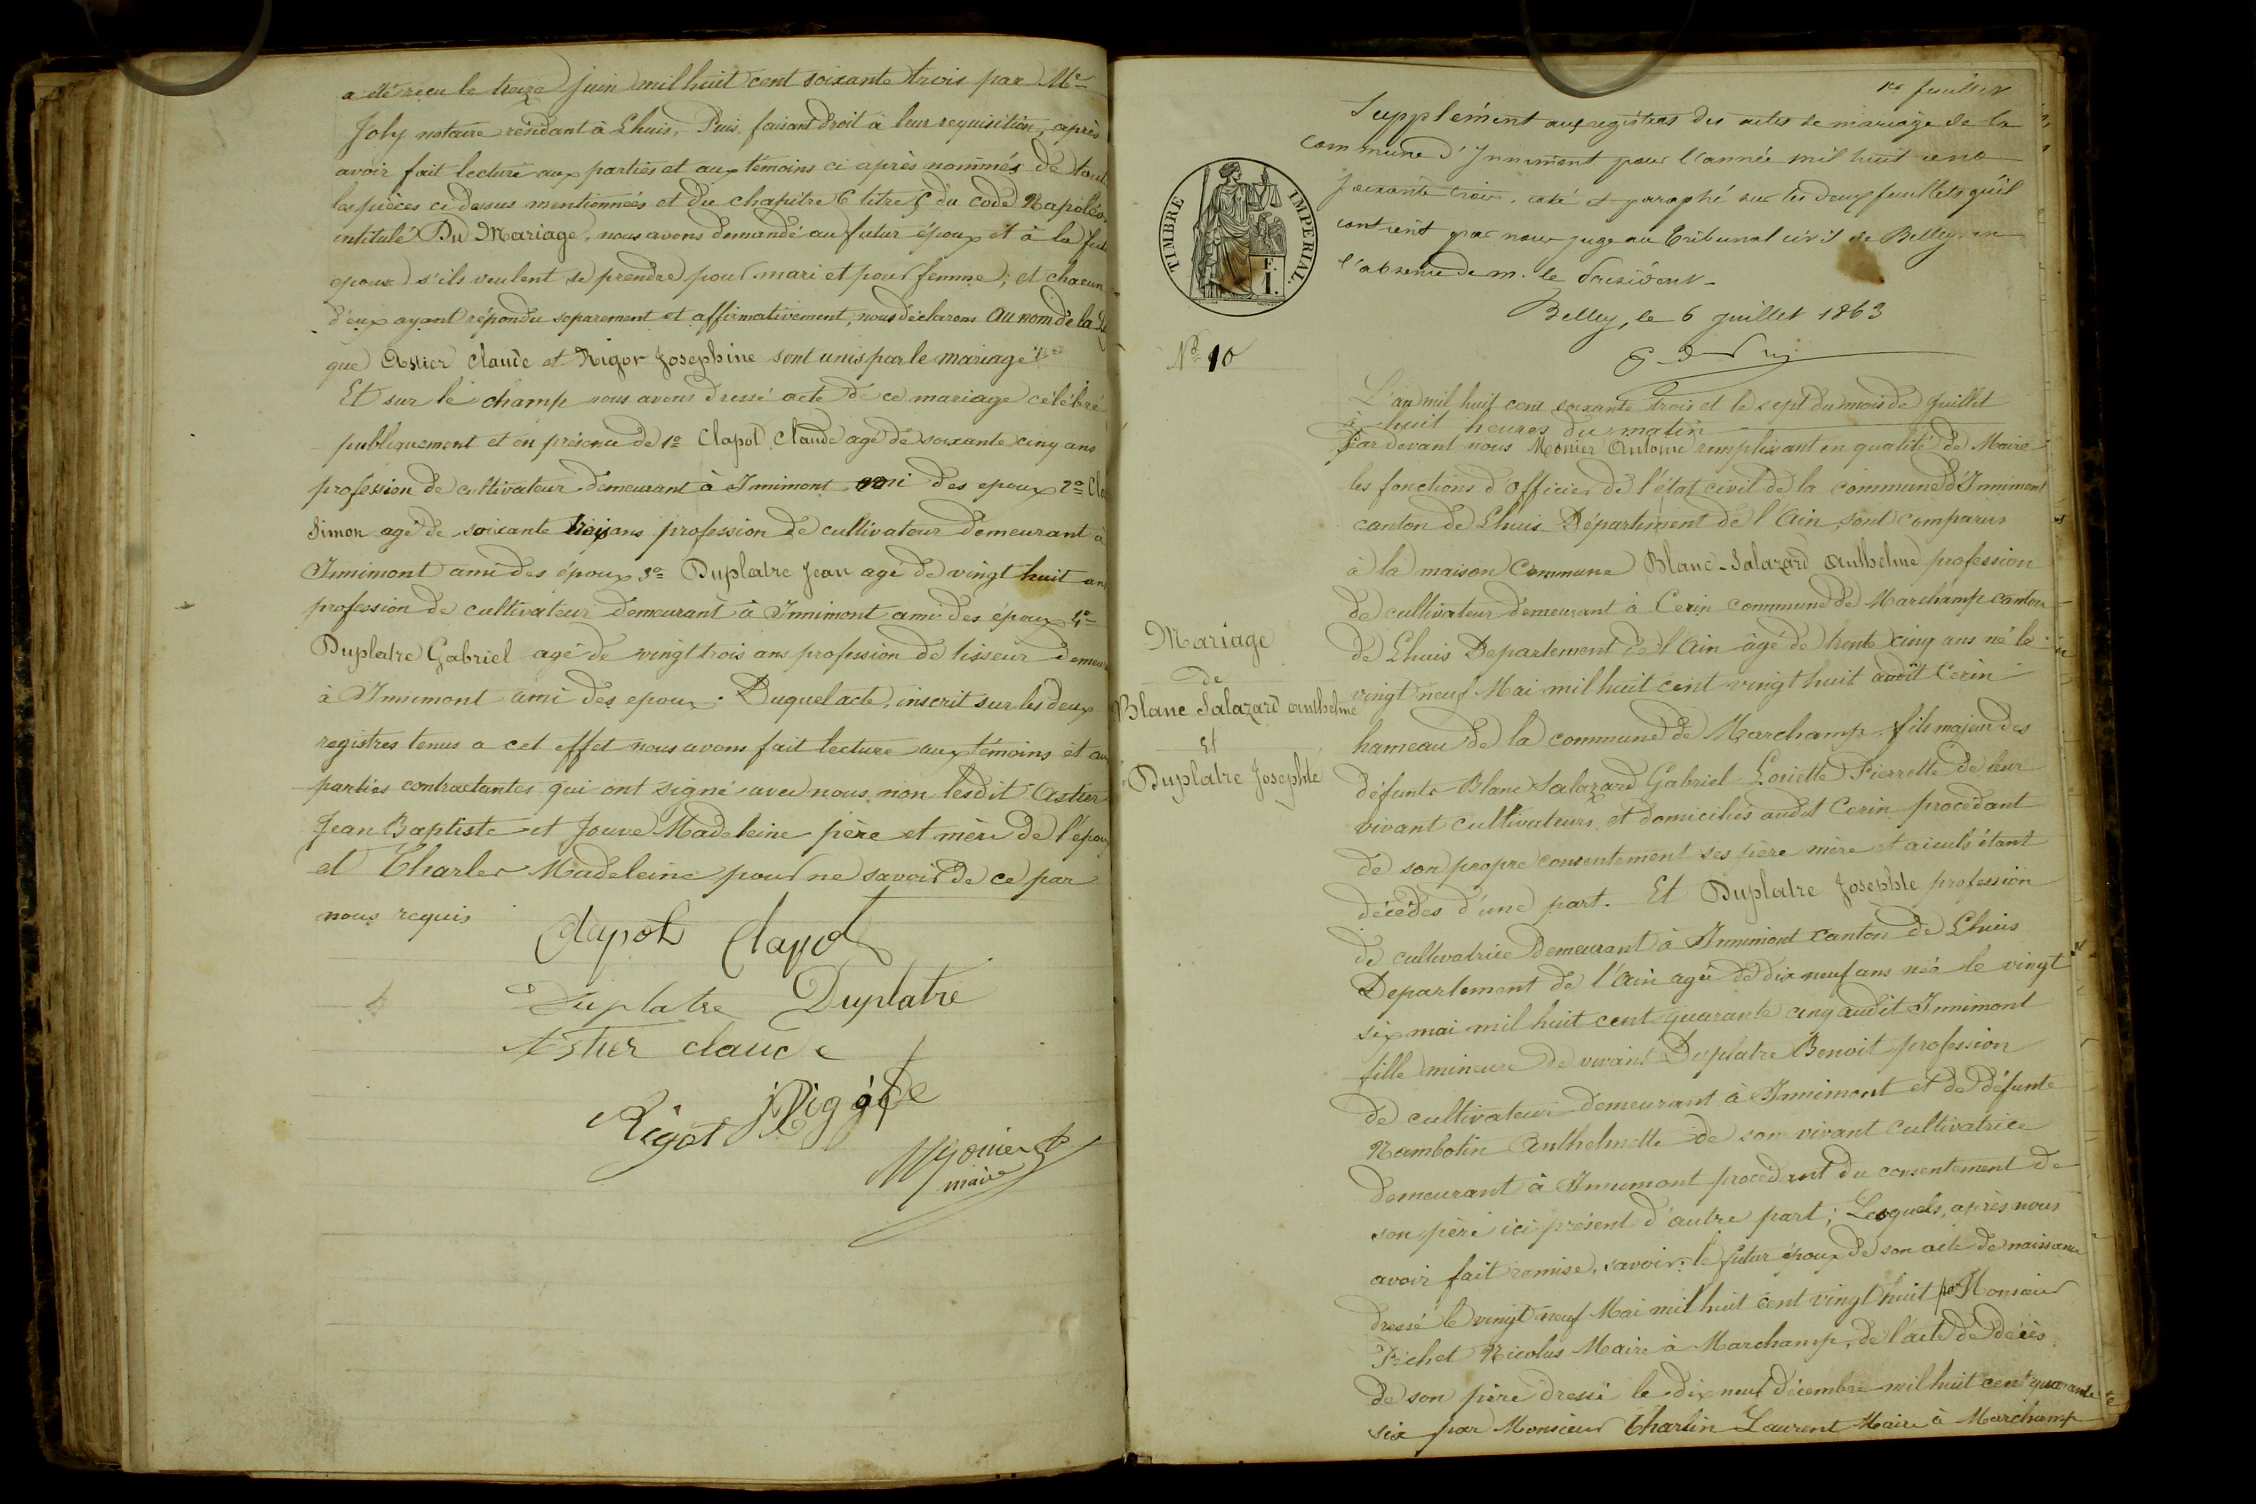 a été reçu le treize juin mil huit cent soixante trois par Me
Joly notaire résidant à Lhuis, Puis, faisant droit à leur requisition, après
avoir fait lecture aux parties et aux témoins ci après nommés de tout
les pièces ci dessus mentionnées et du chapitre 6 titre 5 du code Napoléo
intitulé Du Mariage, nous avons demandé au futur époux et à la fut
epouse s'ils veulent se prendre pour mari et pour femme; et chacun
d'eux ayant répondu separement et affirmativement, nous déclarons au nom de la
que Astier Claude et Rigot Josephine sont unis par le mariage
Et sur le champ nous avons dressé acte de ce mariage célébré
publiquement et en présence de 1o Clapot Claude agé de soixante cinq ans
profession de cultivateur demeurant à Innimont ami des epoux 2o Cla
Simon agé de soixante trois ans profession de cultivateur demeurant à
Innimont ami des époux 3o Duplatre Jean agé de vingt huit ans
profession de cultivateur demeurant à Innimont ami des époux 4o
Duplatre Gabriel agé de vingt trois ans profession de tisseur demeur
à Innimont ami des epoux. Duquel acte, inscrit sur les deux
registres tenus a cet effet nous avons fait lecture aux témoins et au
parties contractantes qui ont signé avec nous non lesdit Astier
Jean Baptiste et Jouve Madeleine père et mère de l'époux
et Charler Madeleine pour ne savoir de ce par
nous requis
Clapot Clapot
Duplatre Duplatre
Astier claude
Rigot
Monier
maire
1er feuillet
Supplément aux registres des actes de mariage de la
commune d'Innimont pour l'année mil huit cent
soixante trois, coté et paraphé sur les deux feuillets qu'il
contient par nous juge au Tribunal civil de Belley en
l'absence de M. le Président.
Belley, le 6 juillet 1863
TIMBRE IMPERIAL.
E. I.
No 10
Mariage
de
Blanc Salazard anthelme
Et
Duplatre Josephte
L'an mil huit cent soixante trois et le sept du mois de Juillet
à huit heures du matin
Par devant nous Monier Antoine remplissant en qualité de Maire
les fonctions d'Officier de l'état civil de la commune d'Innimont
canton de Lhuis Département de l'Ain, sont comparus
à la maison Commune Blanc-Salazard Anthelme profession
de cultivateur demeurant à Cerin commune de Marchamp canton
de Lhuis Departement de l'Ain âgé de trente cinq ans né le
vingt neuf Mai mil huit cent vingt huit audit Cerin
hameau de la commune de Marchamp fils majeur des
défunts Blanc Salazard Gabriel Pierrette de leur
vivant Cultivateurs et domiciliés audit Cerin procédant
de son propre consentement ses père mère et aieuls étant
décédés d'une part. Et Duplatre Josephte profession
de cultivatrice demeurant à Innimont canton de Lhuis
Departement de l'Ain agée de dix neuf ans née le vingt
six mai mil huit cent quarante cinq audit Innimont
fille mineure de vivant Duplatre Benoit profession
de cultivateur demeurant à Innimont et de défunte
Nambotin Anthelmette de son vivant cultivatrice
demeurant à Innimont procédant du consentement de
son père ici présent d'autre part; Lesquels, après nous
avoir fait remise, savoir: le futur époux de son acte de naissance
dressé le vingt neuf Mai mil huit cent vingt huit par Monsieur
Nicolas Maire à Marchamp, de l'acte de décès
de son père dressé le dix neuf décembre mil huit cent quarante
six par Monsieur Charlin Laurent Maire à Marchamp